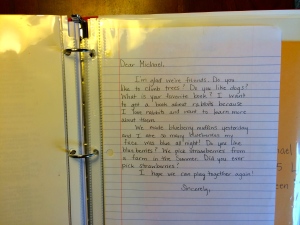 Dear Michael,
I'm glad we're friends. Do you
like to climb trees? Do you like dogs?
What is your favorite book? I want
to get a book about rabbits because
I love rabbits and want to learn more
about them.
We made blueberry muffins yesterday
and I ate so many blueberries my
face was blue all night! Do you like
blueberries? We pick strawberries from
a farm in the summer. Did you ever
pick strawberries?
I hope we can play together again!
Sincerely,